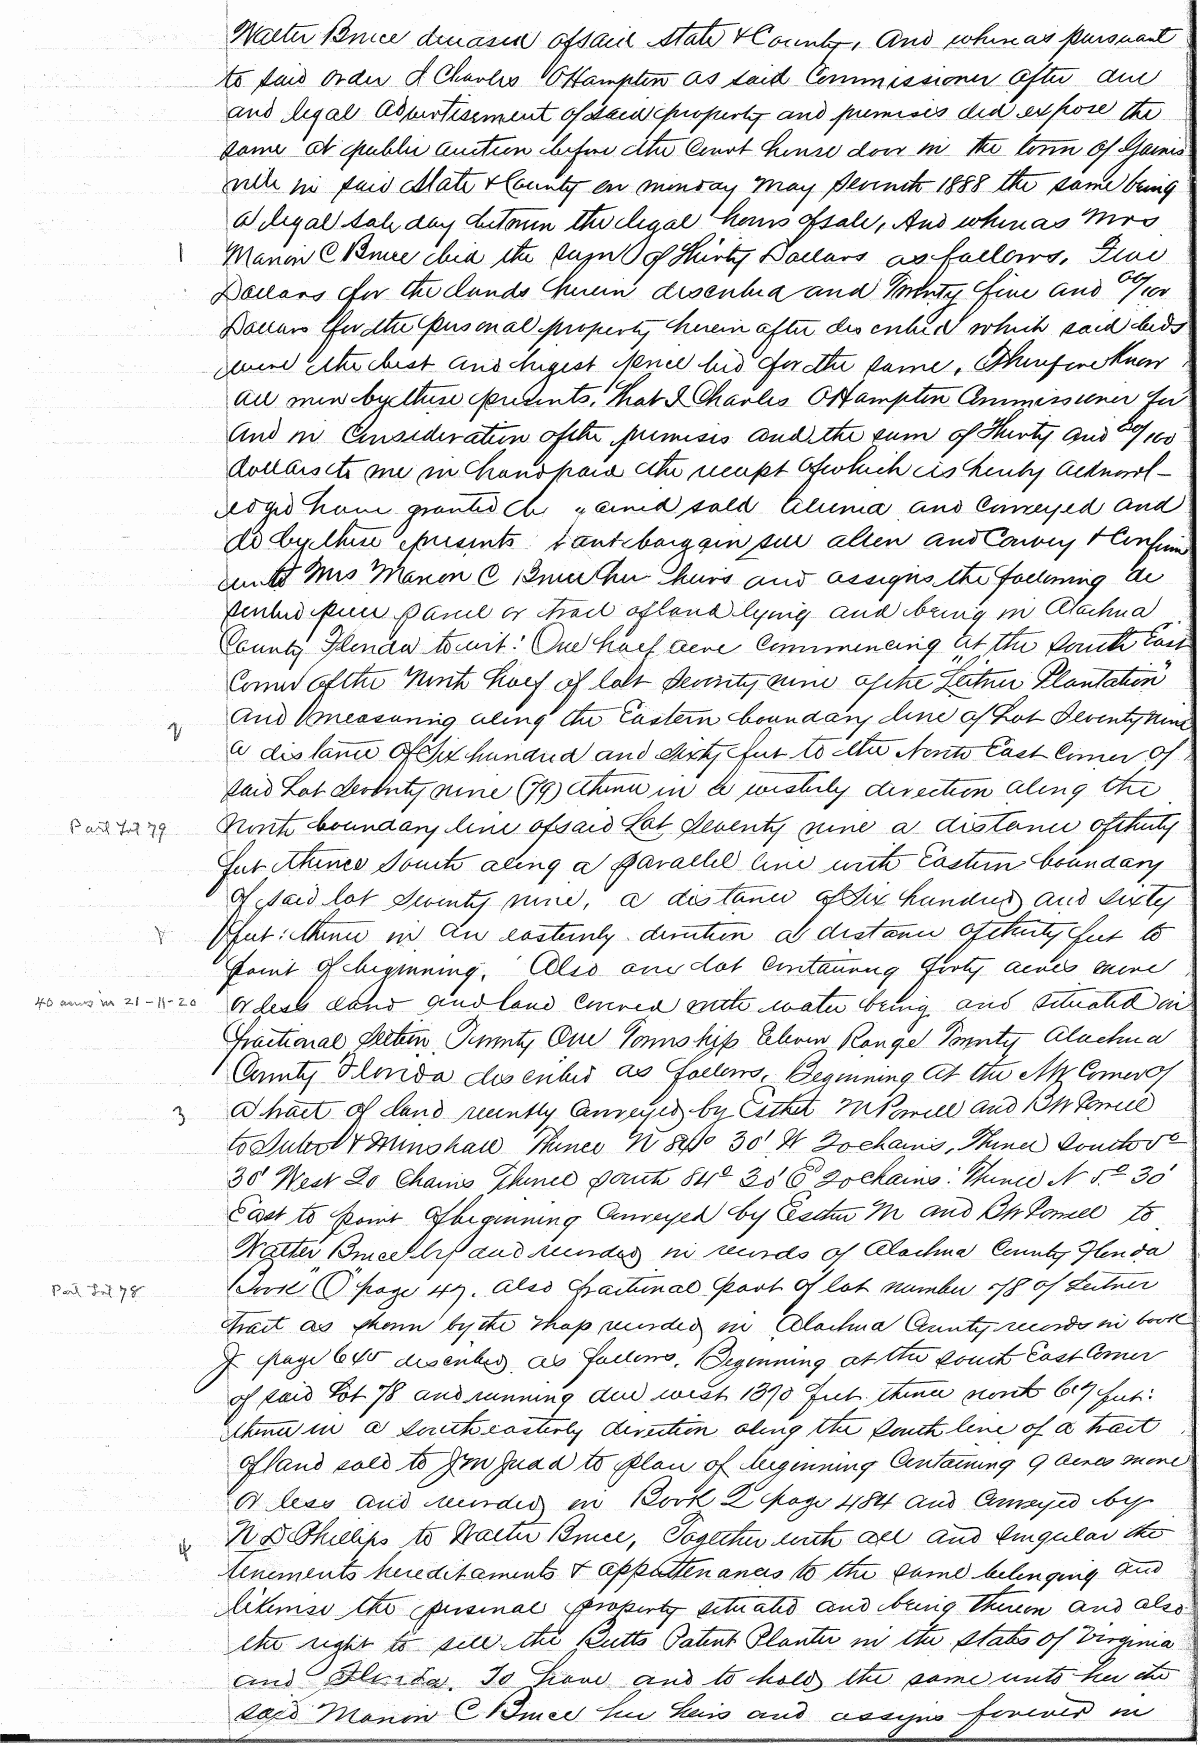 Walter Bruce deceased of said State & County, And whereas pursuant
to said order I Charles O Hampton as said Commissioner after due
and legal advertisement of said property and premises did expose the
same at public auction before the Court house door in the town of Gaines
ville in said State & County on monday may Seventh 1888 the same being
a legal sale day between the legal hours of sale, And whereas Mrs
1 Marion C Bruce bid the sum of Thirty Dollars as follows, Five
Dollars for the lands herein described and Twenty five and 00/100
Dollars for the personal property herein after described which said bids
were the best and highest price bid for the same, Therefore Know
all men by these presents, that I Charles O Hampton Commissioner for
and in Consideration of the premises and the sum of Thirty and 00/100
dollars to me in hand paid the receipt of which is hereby acknowl-
edged have granted sold aliened and conveyed and
do by these presents bargain sell alien and Convey & Confirm
unto Mrs Marion C Bruce her heirs and assigns the following de
scribed piece parcel or tract of land lying and being in Alachua
County Florida to wit: One half acre commencing at the South East
Corner of the North half of lot Seventy nine of the "Leitner Plantation"
and measuring along the Eastern boundary line of Lot Seventy nine
2 a distance of Six hundred and sixty feet to the North East Corner of
said Lot Seventy nine (79) thence in a westerly direction along the
Part Lot 79 North boundary line of said Lot Seventy nine a distance of thirty
feet thence South along a parallel line with Eastern boundary
of said lot Seventy nine, a distance of Six hundred and sixty
feet: thence in an easternly direction a distance of thirty feet to
point of beginning. Also one lot containing forty acres more
40 acres in 21-11-20 or less land and land covered with water being and situated in
fractional Section Twenty One Township Eleven Range Twenty Alachua
County Florida described as follows, Beginning at the NW Corner of
3 a tract of land recently conveyed by Esther M Powell and B W Powell
to & Minshall Thence N 84° 30' W 20 chains, Thence South 5°
30' West 20 Chains Thence South 84° 30' E 20 chains: Thence N 5° 30'
East to point of beginning conveyed by Esther M and B W Powell to
Walter Bruce by and recorded in records of Alachua County Florida
Part Lot 78 Book "O" page 47. also fractional part of lot number 78 of Leitner
tract as shown by the map recorded in Alachua County records in book
J page 645 described as follows. Beginning at the South East Corner
of said Lot 78 and running due west 1390 feet thence north 617 feet:
thence in a south easterly direction along the South line of a tract
of land sold to J M Judd to place of beginning Containing 9 acres more
or less and recorded in Book Q page 484 and Conveyed by
4 N D Phillips to Walter Bruce, Together with all and singular the
tenements hereditaments & appurtenances to the same belonging and
likewise the personal property situated and being thereon and also
the right to sell the Butts Patent Planter in the states of Virginia
and Florida. To have and to hold the same unto her the
said Marion C Bruce her heirs and assigns forever in